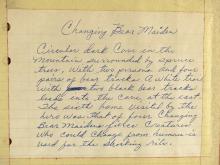 Changing Bear Maiden
Circular dark Cave in the
Mountain surrounded by spruce
trees, With two persons and four
pairs of bear tracks. A white tier
With two black bear tracks
back into the Cave to the east.
The sixth home visited by the
hero was that of four Changing
Bear Maidens, fierce Creatures
who could change from human is
used for the Shooting rite.